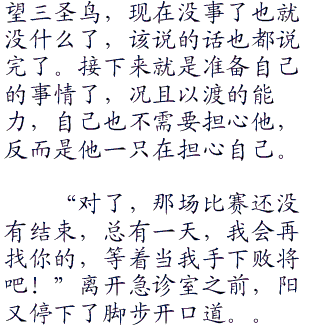 望三圣鸟，现在没事了也就
没什么了，该说的话也都说
完了。接下来就是准备自己
的事情了，况且以渡的能
力，自己也不需要担心他，
反而是他一只在担心自己。
“对了，那场比赛还没
有结束，总有一天，我会再
找你的，等着当我手下败将
吧！”离开急诊室之前，阳
又停下了脚步开口道。。